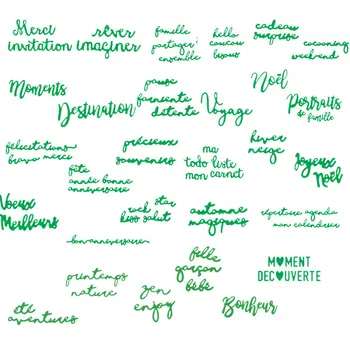 Merci
invitation
rêver
imaginer
famille
partager
ensemble
hello
coucou
bisous
cadeau
surprise
cocooning
weekend
Moments
Destination
pause
farniente
détente
Voyage
Noël
Portraits
de famille
félicitations
bravo merci
précieux
souvenirs
ma
todo liste
mon carnet
hiver
neige
Joyeux
Noël
fête
année bonne
anniversaire
Voeux
Meilleurs
rock star
kiss salut
automne
magiques
répertoire agenda
mon calendrier
bon anniversaire
printemps
nature
fille
garçon
bébé
MOMENT
DECOUVERTE
été
aventures
zen
enjoy
Bonheur